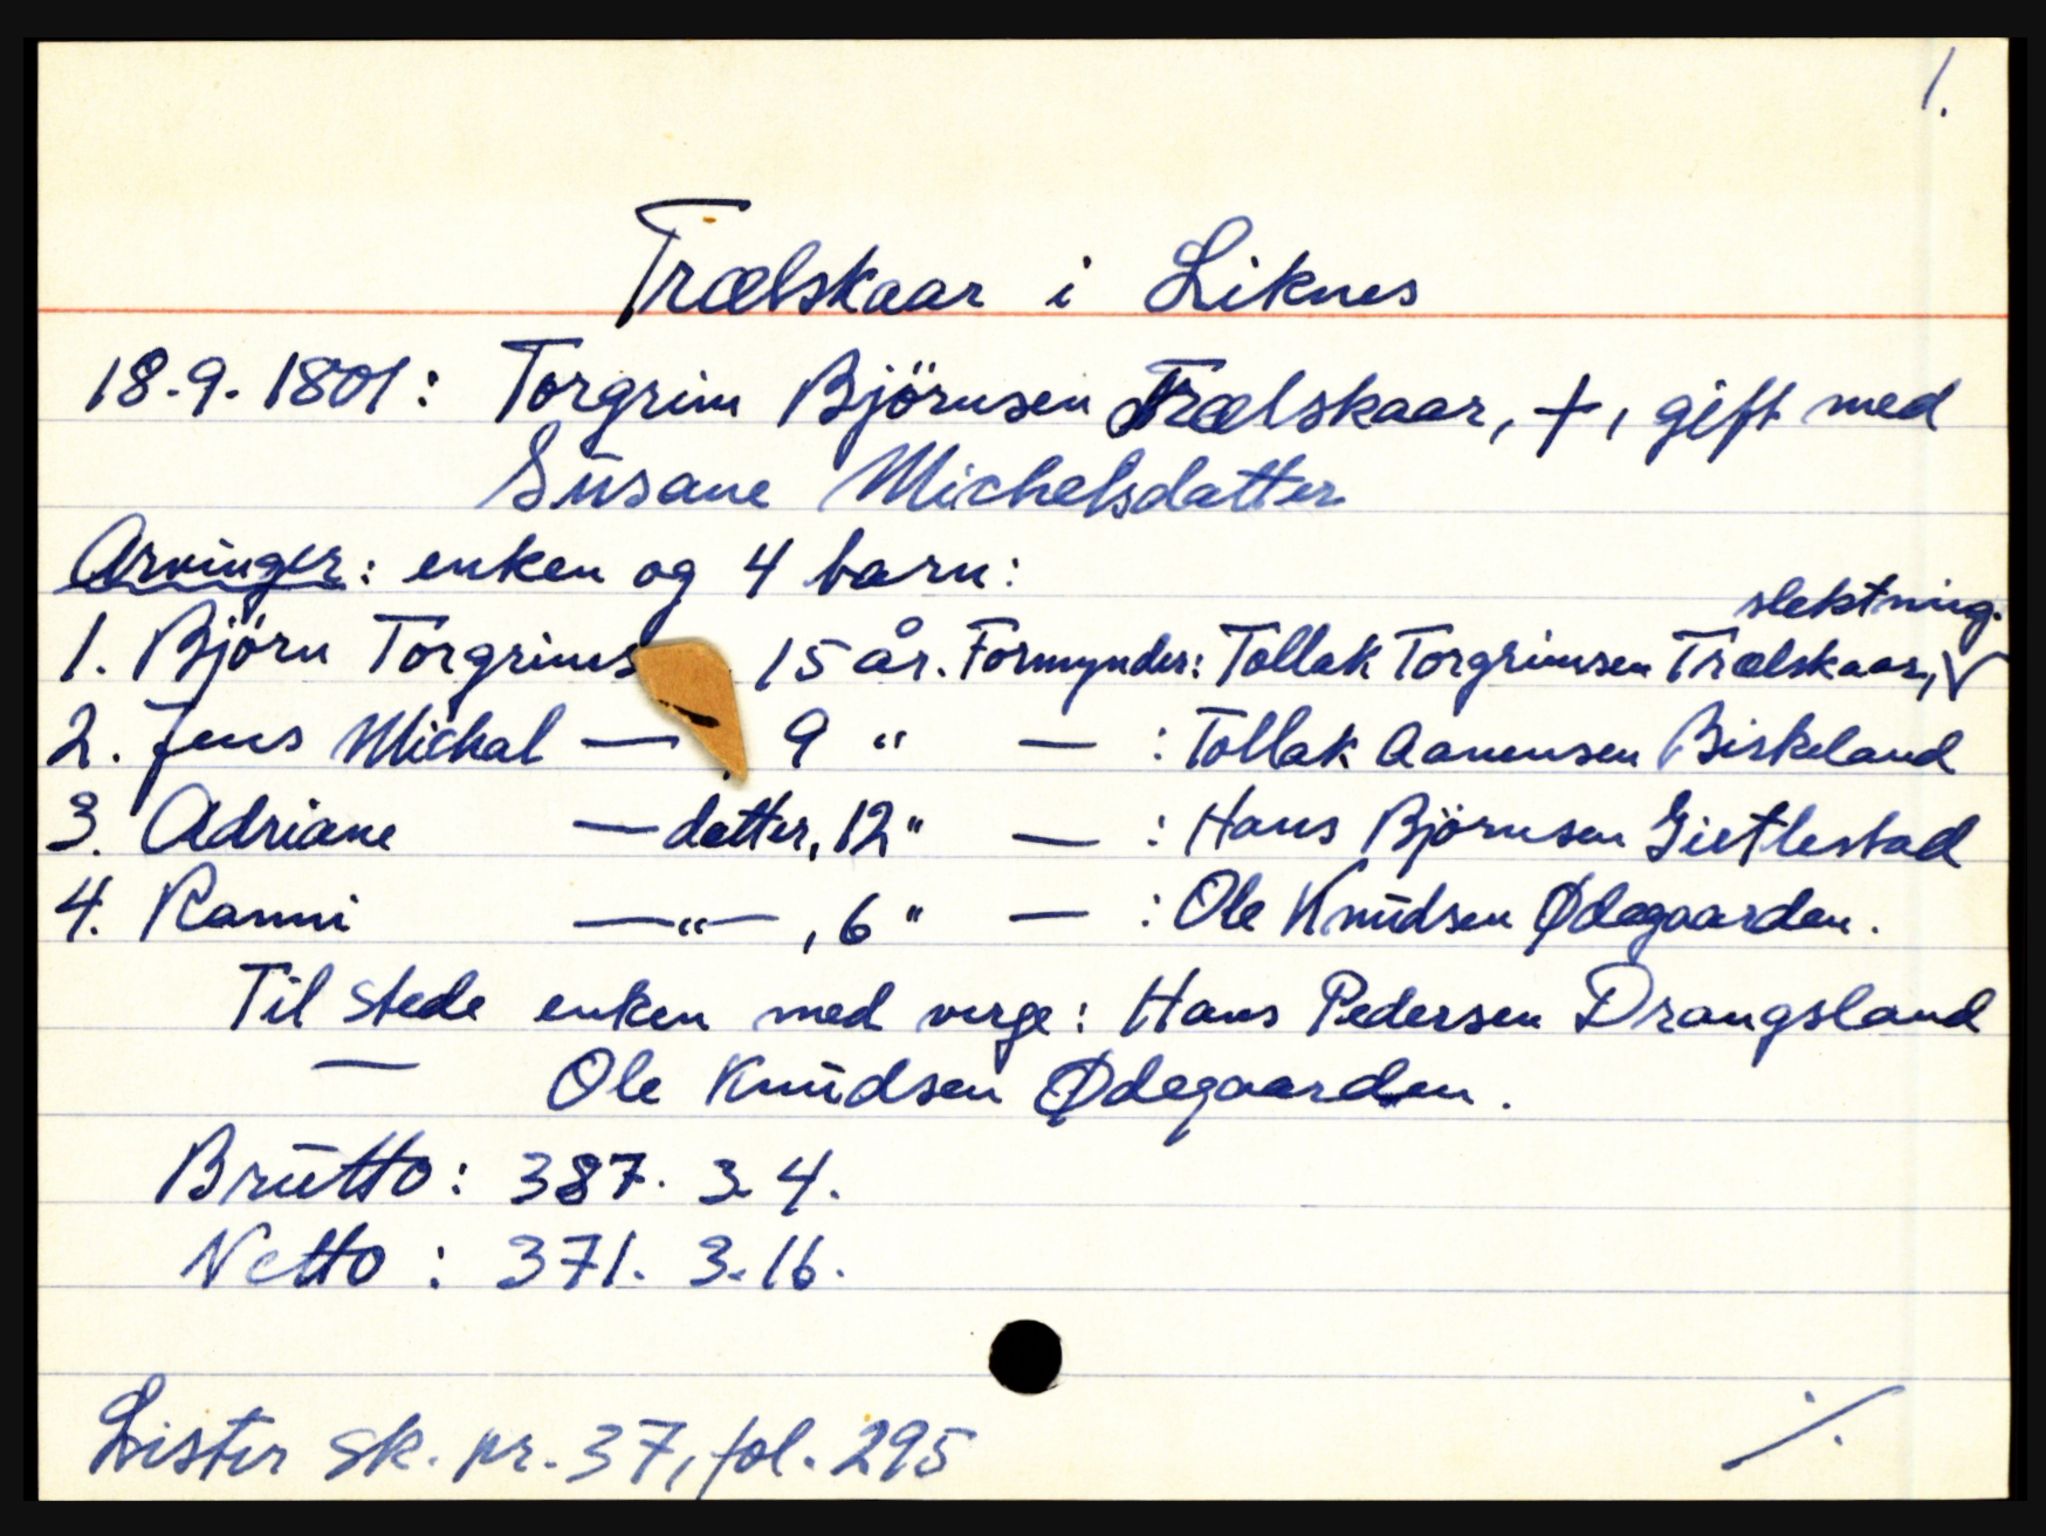 1.
Trælskaar i Liknes
18.9.1801: Torgrim Björnsen Trælskaar, +, gift med
Susane Michelsdatter
Arvinger: enken og 4 barn:
slektning.
1. Björn Torgrims 15 år. Formynder: Tollak Torgrimsen Trælskaar,
2. Jens Michal — , 9 " — : Tollak Aanensen Birkeland
3. Adriane — datter, 12 " — : Hans Björnsen Gietlestad
4. Ranni — " — , 6 " — : Ole Knudsen Ødegaarden.
Til stede enken med verge: Hans Pedersen Drangsland
— Ole Knudsen Ødegaarden.
Brutto: 387. 3. 4.
Netto: 371. 3. 16.
Lister sk. pr. 37, fol. 295
./.